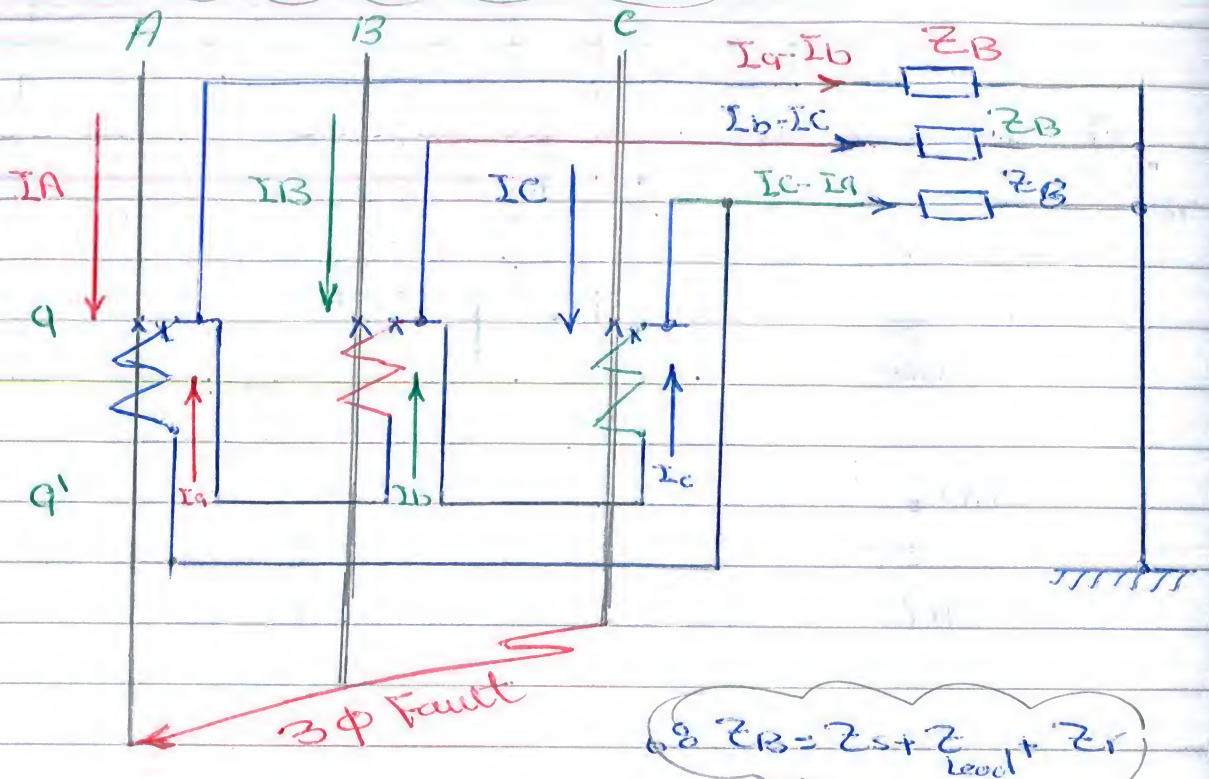 A B C
Ia-Ib ZB
Ib-Ic ZB
IA IB IC Ic-Ia ZB
a
a' Ia Ib Ic
3φ Fault
∴ ZB = Zs + Z Lead + Zr